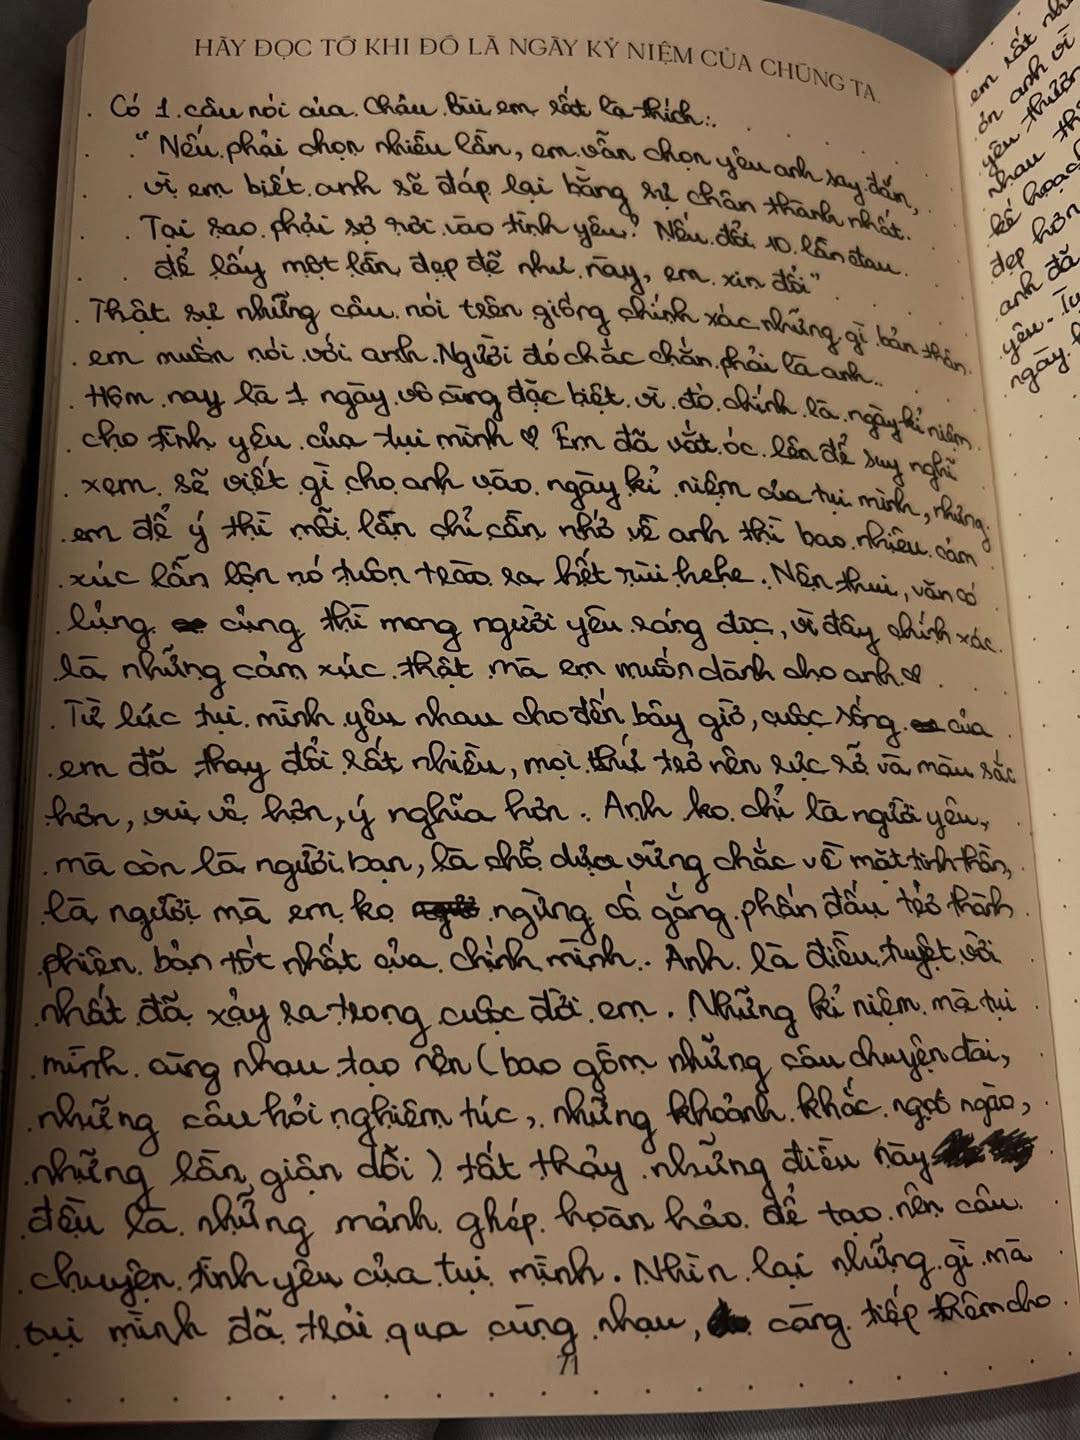 HÃY ĐỌC TỜ KHI ĐÓ LÀ NGÀY KỶ NIỆM CỦA CHÚNG TA.
Có 1 câu nói của Châu Bùi em rất là thích:
"Nếu phải chọn nhiều lần, em vẫn chọn yêu anh say đắm,
vì em biết anh sẽ đáp lại bằng sự chân thành nhất.
Tại sao phải sợ rơi vào tình yêu? Nếu đổi 10 lần đau
để lấy một lần đẹp đẽ như này, em xin đổi"
Thật sự những câu nói trên giống chính xác những gì bản thân
em muốn nói với anh. Người đó chắc chắn phải là anh..
Hôm nay là 1 ngày vô cùng đặc biệt vì đó chính là ngày kỉ niệm
cho tình yêu của tụi mình ♡ Em đã vắt óc lên để suy nghĩ
xem sẽ viết gì cho anh vào ngày kỉ niệm của tụi mình, nhưng
em để ý thì mỗi lần chỉ cần nhớ về anh thì bao nhiêu cảm
xúc lẫn lộn nó tuôn trào ra hết rùi hehe. Nên thui, văn có
lủng củng thì mong người yêu ráng đọc, vì đây chính xác
là những cảm xúc thật mà em muốn dành cho anh ♡
Từ lúc tụi mình yêu nhau cho đến bây giờ, cuộc sống của
em đã thay đổi rất nhiều, mọi thứ trở nên rực rỡ và màu sắc
hơn, vui vẻ hơn, ý nghĩa hơn. Anh ko chỉ là người yêu,
mà còn là người bạn, là chỗ dựa vững chắc về mặt tinh thần,
là người mà em ko ngừng cố gắng phấn đấu trở thành
phiên bản tốt nhất của chính mình. Anh là điều tuyệt vời
nhất đã xảy ra trong cuộc đời em. Những kỉ niệm mà tụi
mình cùng nhau tạo nên (bao gồm những câu chuyện dài,
những câu hỏi nghiêm túc, những khoảnh khắc ngọt ngào,
những lần giận dỗi) tất thảy những điều này
đều là những mảnh ghép hoàn hảo để tạo nên câu
chuyện tình yêu của tụi mình. Nhìn lại những gì mà
tụi mình đã trải qua cùng nhau, càng tiếp thêm cho
71
em rất
ơn anh vì
yêu thương
nhau
kế hoạch
đẹp hơn
anh đã
yêu.
ngày